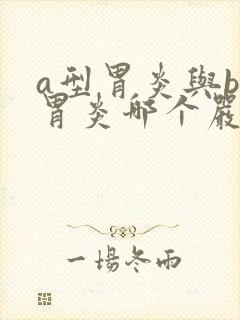 a型胃炎與b
胃炎哪个嚴
一場冬雨